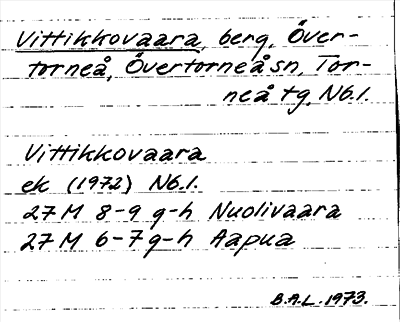 Vittikkovaara, berg, Över-
torneå, Övertorneå sn, Tor-
neå tg, Nb.l.
Vittikkovaara
ek (1972) Nb.l.
27 M 8-9 g-h Nuolivaara
27 M 6-7 g-h Aapua
B.A.L. 1973.